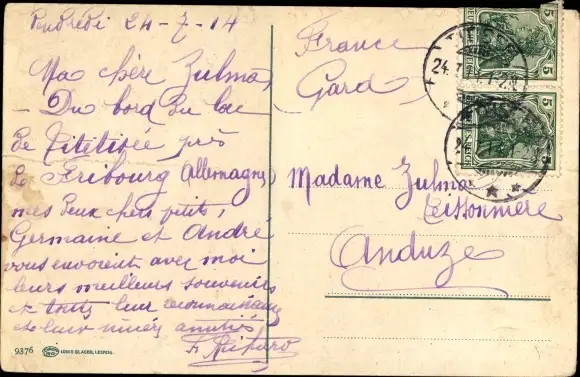 Vendredi 24-7-14
Ma chère Zulma,
Du bord du lac
de Titetisée près
de Fribourg (Allemagne)
mes deux chers petits,
Germaine et André
vous envoient avec moi
leurs meilleurs souvenirs
et toute leur reconnaissance
et leur amitiés
France
Gard
Madame Zulma
Teissonnière
Anduze
5
5
TITISEE
24.7.
9376 LOUIS GLASER, LEIPZIG.